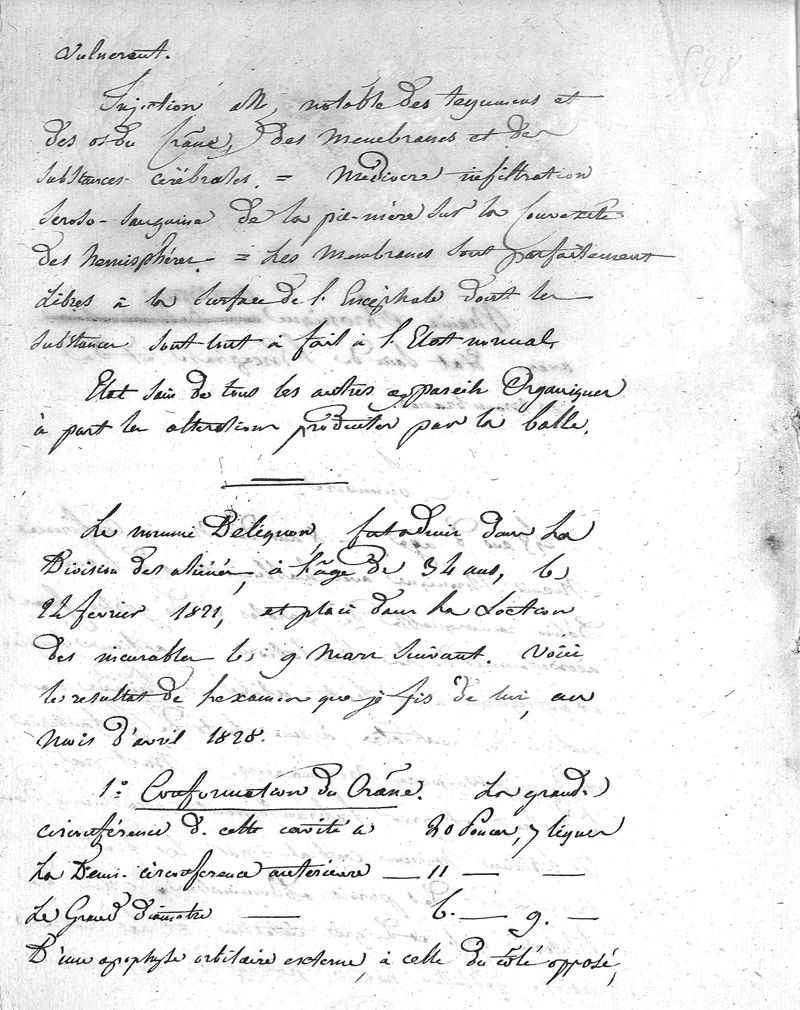 vulnerant.
Injection assez notable des tegumens et
des os du Crâne, des membranes et des
substances cérébrales. = Médiocre infiltration
seroso-sanguine de la pie-mère sur la Convexité
des hemisphères. = Les membranes sont parfaitement
Libres à la surface de l'Encéphale dont les
substances sont tout à fait à l'Etat normal.
Etat sain de tous les autres appareils Organiques
à part les alterations produites par la balle.
Le nommé Delignon, fut admis dans La
Division des aliénés, à l'âge de 34 ans, le
22 fevrier 1821, et placé dans La Section
des incurables le 9 Mars suivant. Voici
le resultat de l'examen que je fis de lui, au
mois d'avril 1828.
1.° Conformation du Crâne. La grande
circonférence de cette cavité a 20 Pouces, 7 lignes
La Demi-circonference anterieure — 11 — —
Le Grand diametre — 6. — 9. —
D'une apophyse orbitaire externe, à celle du coté opposé,